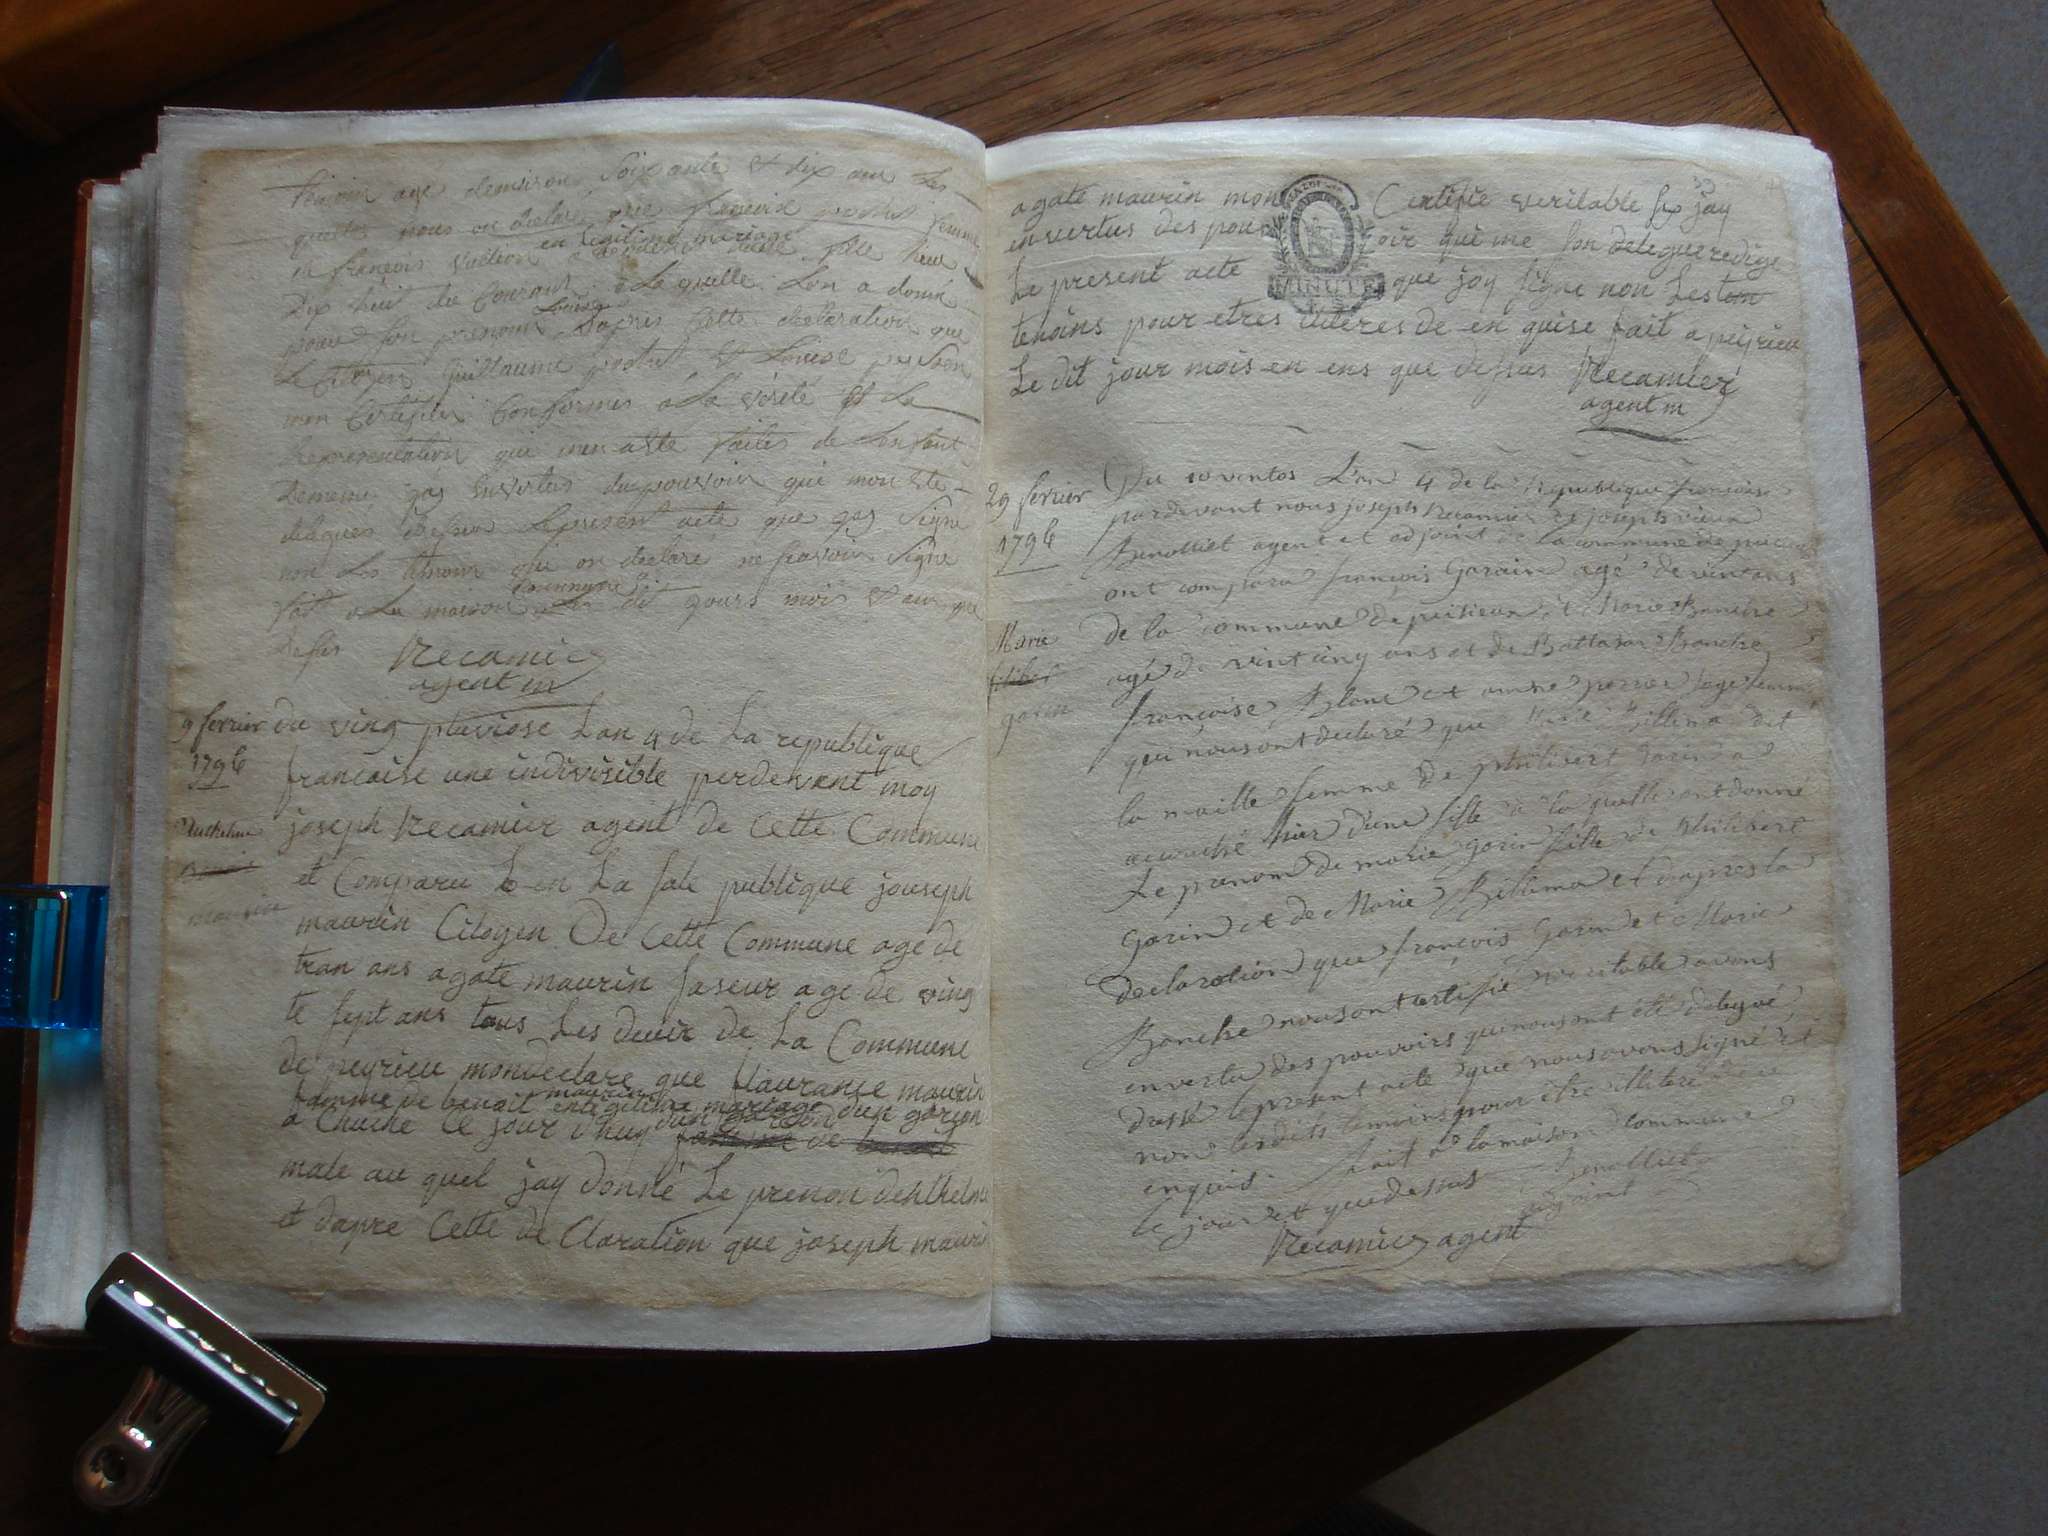 temoin age demviron soixante et dix ans les
quelles nous on declaré que francoise femme
en legitime mariage
dix huit du Courant a La quelle Lon a donné
Louise
pour son prenom Dapres Cette declaration que
Le Citoyen Guillaume et Louise
mon Certifier Conformes a La verité et La
Representation qui men aste faites de Lenfant
denomé jay Envertus du pouvoir qui mon ete
delegués Redigé Lepresent acte que jay Signé
non Les temoins qui on declaré ne scavoir Signe
Commune
fait a La maison dit jours mois et an que
desus
Recamier
agent m
9 fevrier
1796
Anthelme
maurin
du ving pluviose Lan 4 de La republique
francaise une indivisible perdevent moy
joseph Recamier agent de Cette Commune
et Comparu en La sale publique jouseph
maurin Citoyen De Cette Commune age de
tran ans agate maurin saseur age de ving
te sept ans tous Les deux de La Commune
de peyrieu mondeclare que Llaurance maurin
maurin
famme de benoit entegitime mariage dun garson
a Chuché Ce jour dhuy dun garson de
male au quel jay donné Le prenon dehthelme
et dapre Cette de Claration que joseph maurin
agate maurin mon Certifie veritable jay
envertus des pouvoir qui me son delegue redige
Le present acte que jay signe non Les
MINUTE
temoins pour etres de en quise fait a peyrieu
Le dit jour mois en ens que dessus Recamier
agent m
29 fevrier
1796
Marie
garin
Du 10 ventos L'an 4 de la Republique francoise
pardevant nous joseph Recamier et joseph
Benolliet agent et adjoint de la commune de
ont comparu françois Garain agé de vint ans
de la commune de peisieux et Marie Banche
agé de vint cinq ans et de Baltasar Banche
françoise et anne perrier sage femme
qui nous ont declaré que Marie Billima dit
la maille femme de philibert Garin a
accouché hier d'une fille a la quelle ont donné
Le prenom de marie Garin fille de Philibert
Garin et de Marie Billima et dapres la
declaration que françois Garin et Marie
Banche nous ont certifié veritable avons
envertu des pouvoirs qui nous ont été delegué
dressé le present acte que nous avons signé et
non lesdits temoins pour être illiteré de ce
enquis. Fait à la maison commune
le jour et que dessus Benolliet
adjoint
Recamier agent